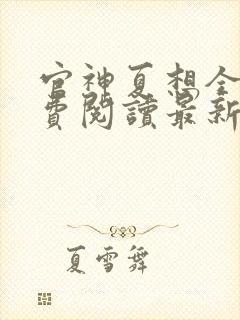 官神夏想全
費閱讀最新
夏雪舞